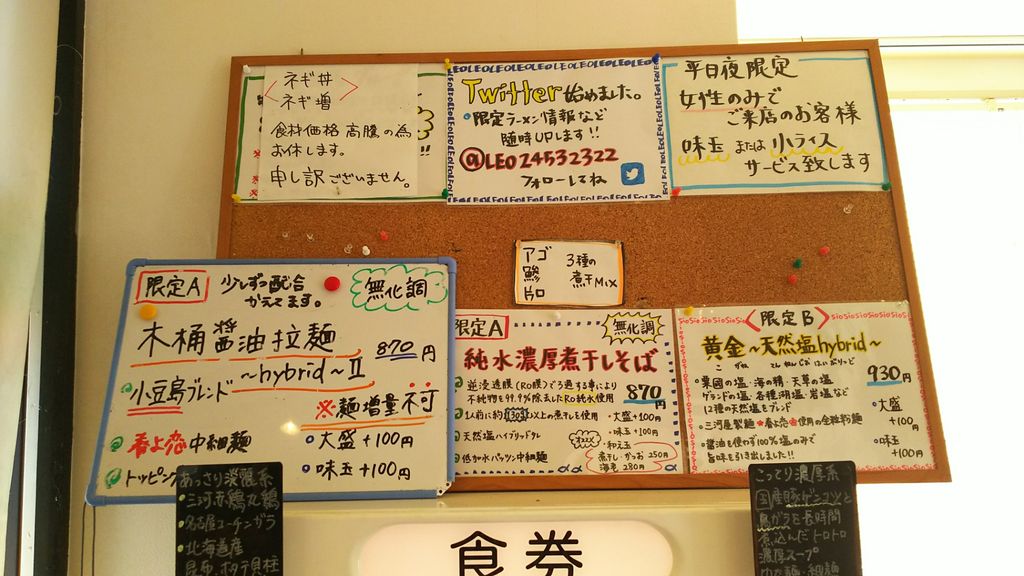 ネギ丼
ネギ増
食材価格高騰の為
お休します。
申し訳ございません。
Twitter始めました。
限定ラーメン情報など
随時UPします!!
@LEO24532322
フォローしてね
平日夜限定
女性のみで
ご来店のお客様
味玉 または 小ライス
サービス致します
アゴ
鯵
片口
3種の
煮干MIX
限定A
少しずつ配合
かえてます。
無化調
木桶醤油拉麺
870円
～hybrid～Ⅱ
小豆島ブレンド
※麺増量不可
春よ恋 中細麺
・大盛+100円
トッピング
・味玉+100円
限定A
無化調
純水濃厚煮干しそば
逆浸透膜(RO膜)でろ過する事により
不純物を99.9%除去したRO純水使用
870円
1人前に約130g以上の煮干しを使用
・大盛+100円
天然塩ハイブリッドタレ
・味玉+100円
・和え玉
低加水パッツン中細麺
煮干し・かつお 250円
海老 280円
限定B
黄金～天然塩hybrid～
こがね てんねんじお はいぶりっど
930円
・粟國の塩・海の精・天草の塩
ゲランドの塩・各種湖塩・岩塩など
12種の天然塩をブレンド
・大盛
+100円
・三河屋製麺 春よ恋 使用の全粒粉麺
・醤油を使わず100%塩のみで
旨味を引き出しました!!
・味玉
+100円
あっさり淡麗系
・三河赤鶏丸鶏
・名古屋コーチンガラ
・北海道産
昆布・ホタテ貝柱
こってり濃厚系
国産豚ゲンコツと
鳥ガラを長時間
煮込んだトロトロ
濃厚スープ
食券